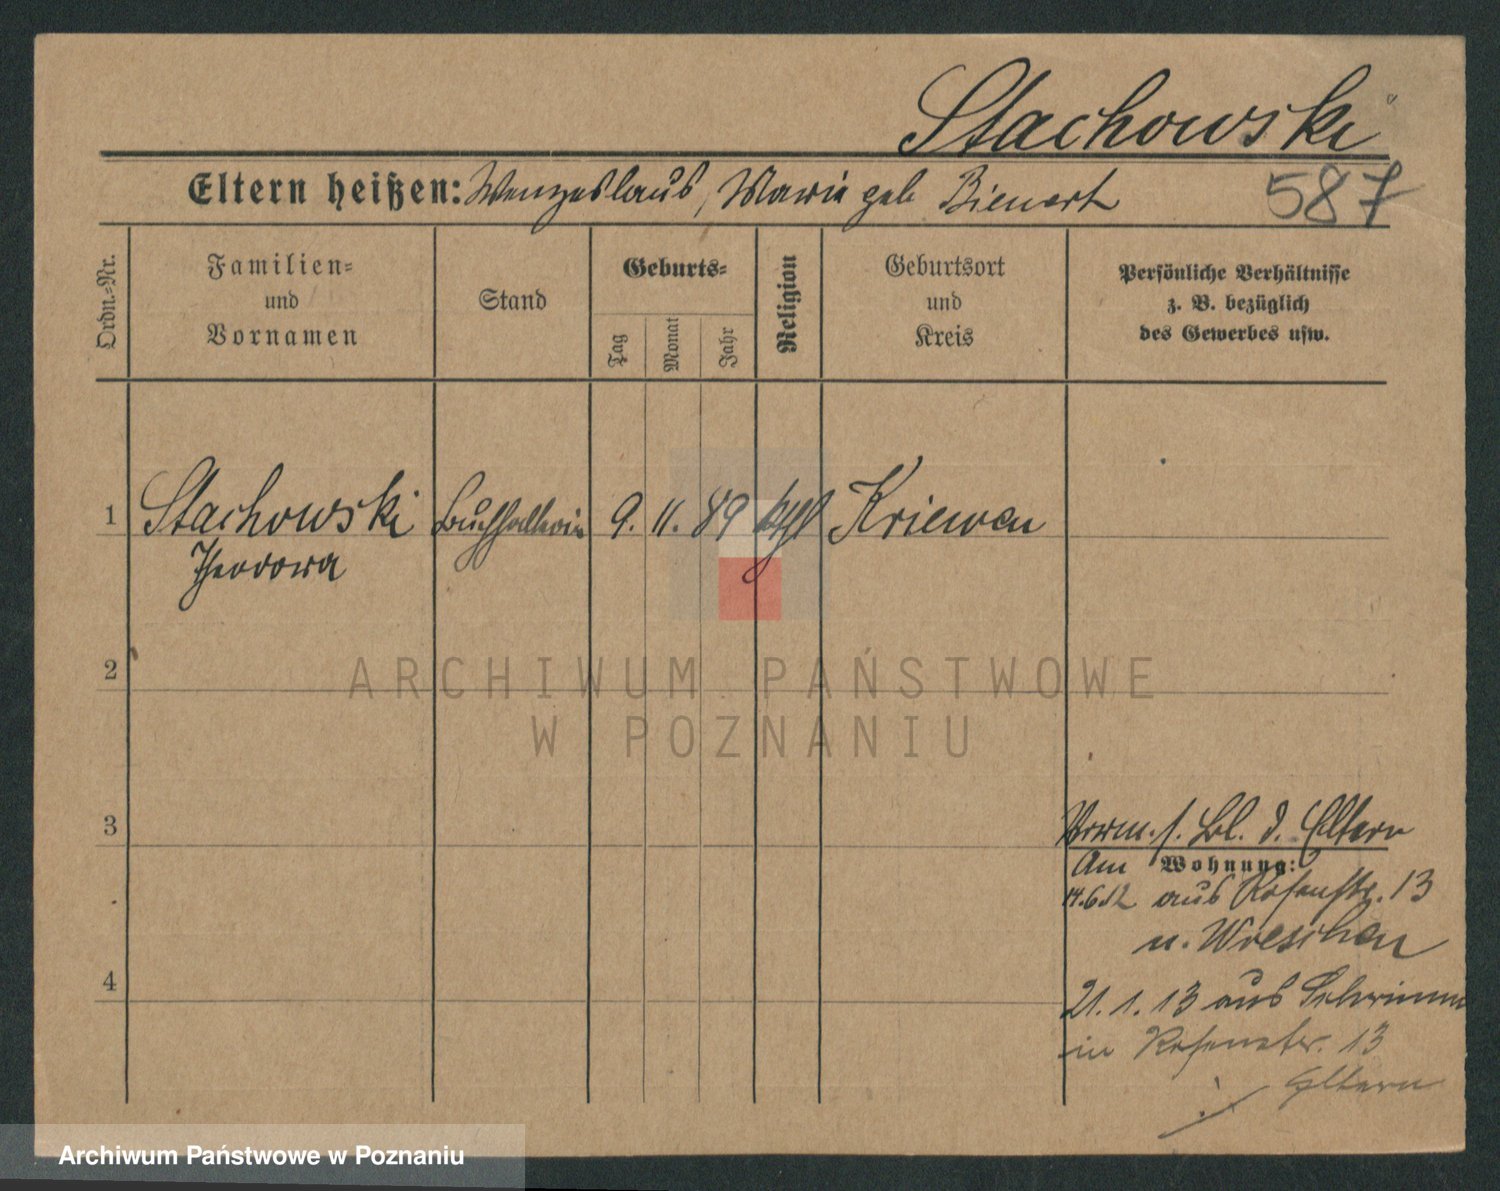 Stachowski
Eltern heißen: Wenzeslaus, Marie geb Bienert
587
Ordn.-Nr.
Familien-
und
Vornamen
Stand
Geburts-
Tag
Monat
Jahr
Religion
Geburtsort
und
Kreis
Persönliche Verhältnisse
z. B. bezüglich
des Gewerbes usw.
1 Stachowski Buchhalterin 9. 11. 89 kthl Kriewen
Theodora
2
ARCHIWUM PAŃSTWOWE
W POZNANIU
3
Vorm. s. Bl. d. Eltern
Am Wohnung:
14.6.12 aus Rosenstr. 13
n. Wreschen
4
21. 1. 13 aus
in Rosenstr. 13
Eltern
Archiwum Państwowe w Poznaniu